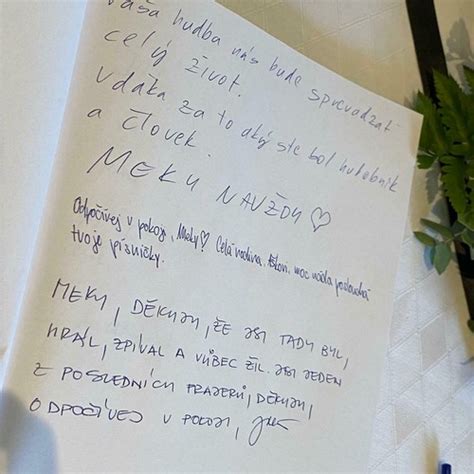 Vaša hudba nás bude sprevádzať
celý život.
Vďaka za to aký ste bol hudobník
a človek.
MEKY NAVŽDY ♡
Odpočívej v pokoji, Meky♡ Celá rodina moc ráda poslouchá
tvoje písničky.
MEKY, DĚKUJU, ŽE JSI TADY BYL,
HRÁL, ZPÍVAL A VŮBEC ŽIL. JSI JEDEN
Z POSLEDNÍCH FRAJERŮ, DĚKUJU,
ODPOČÍVEJ V POKOJI,